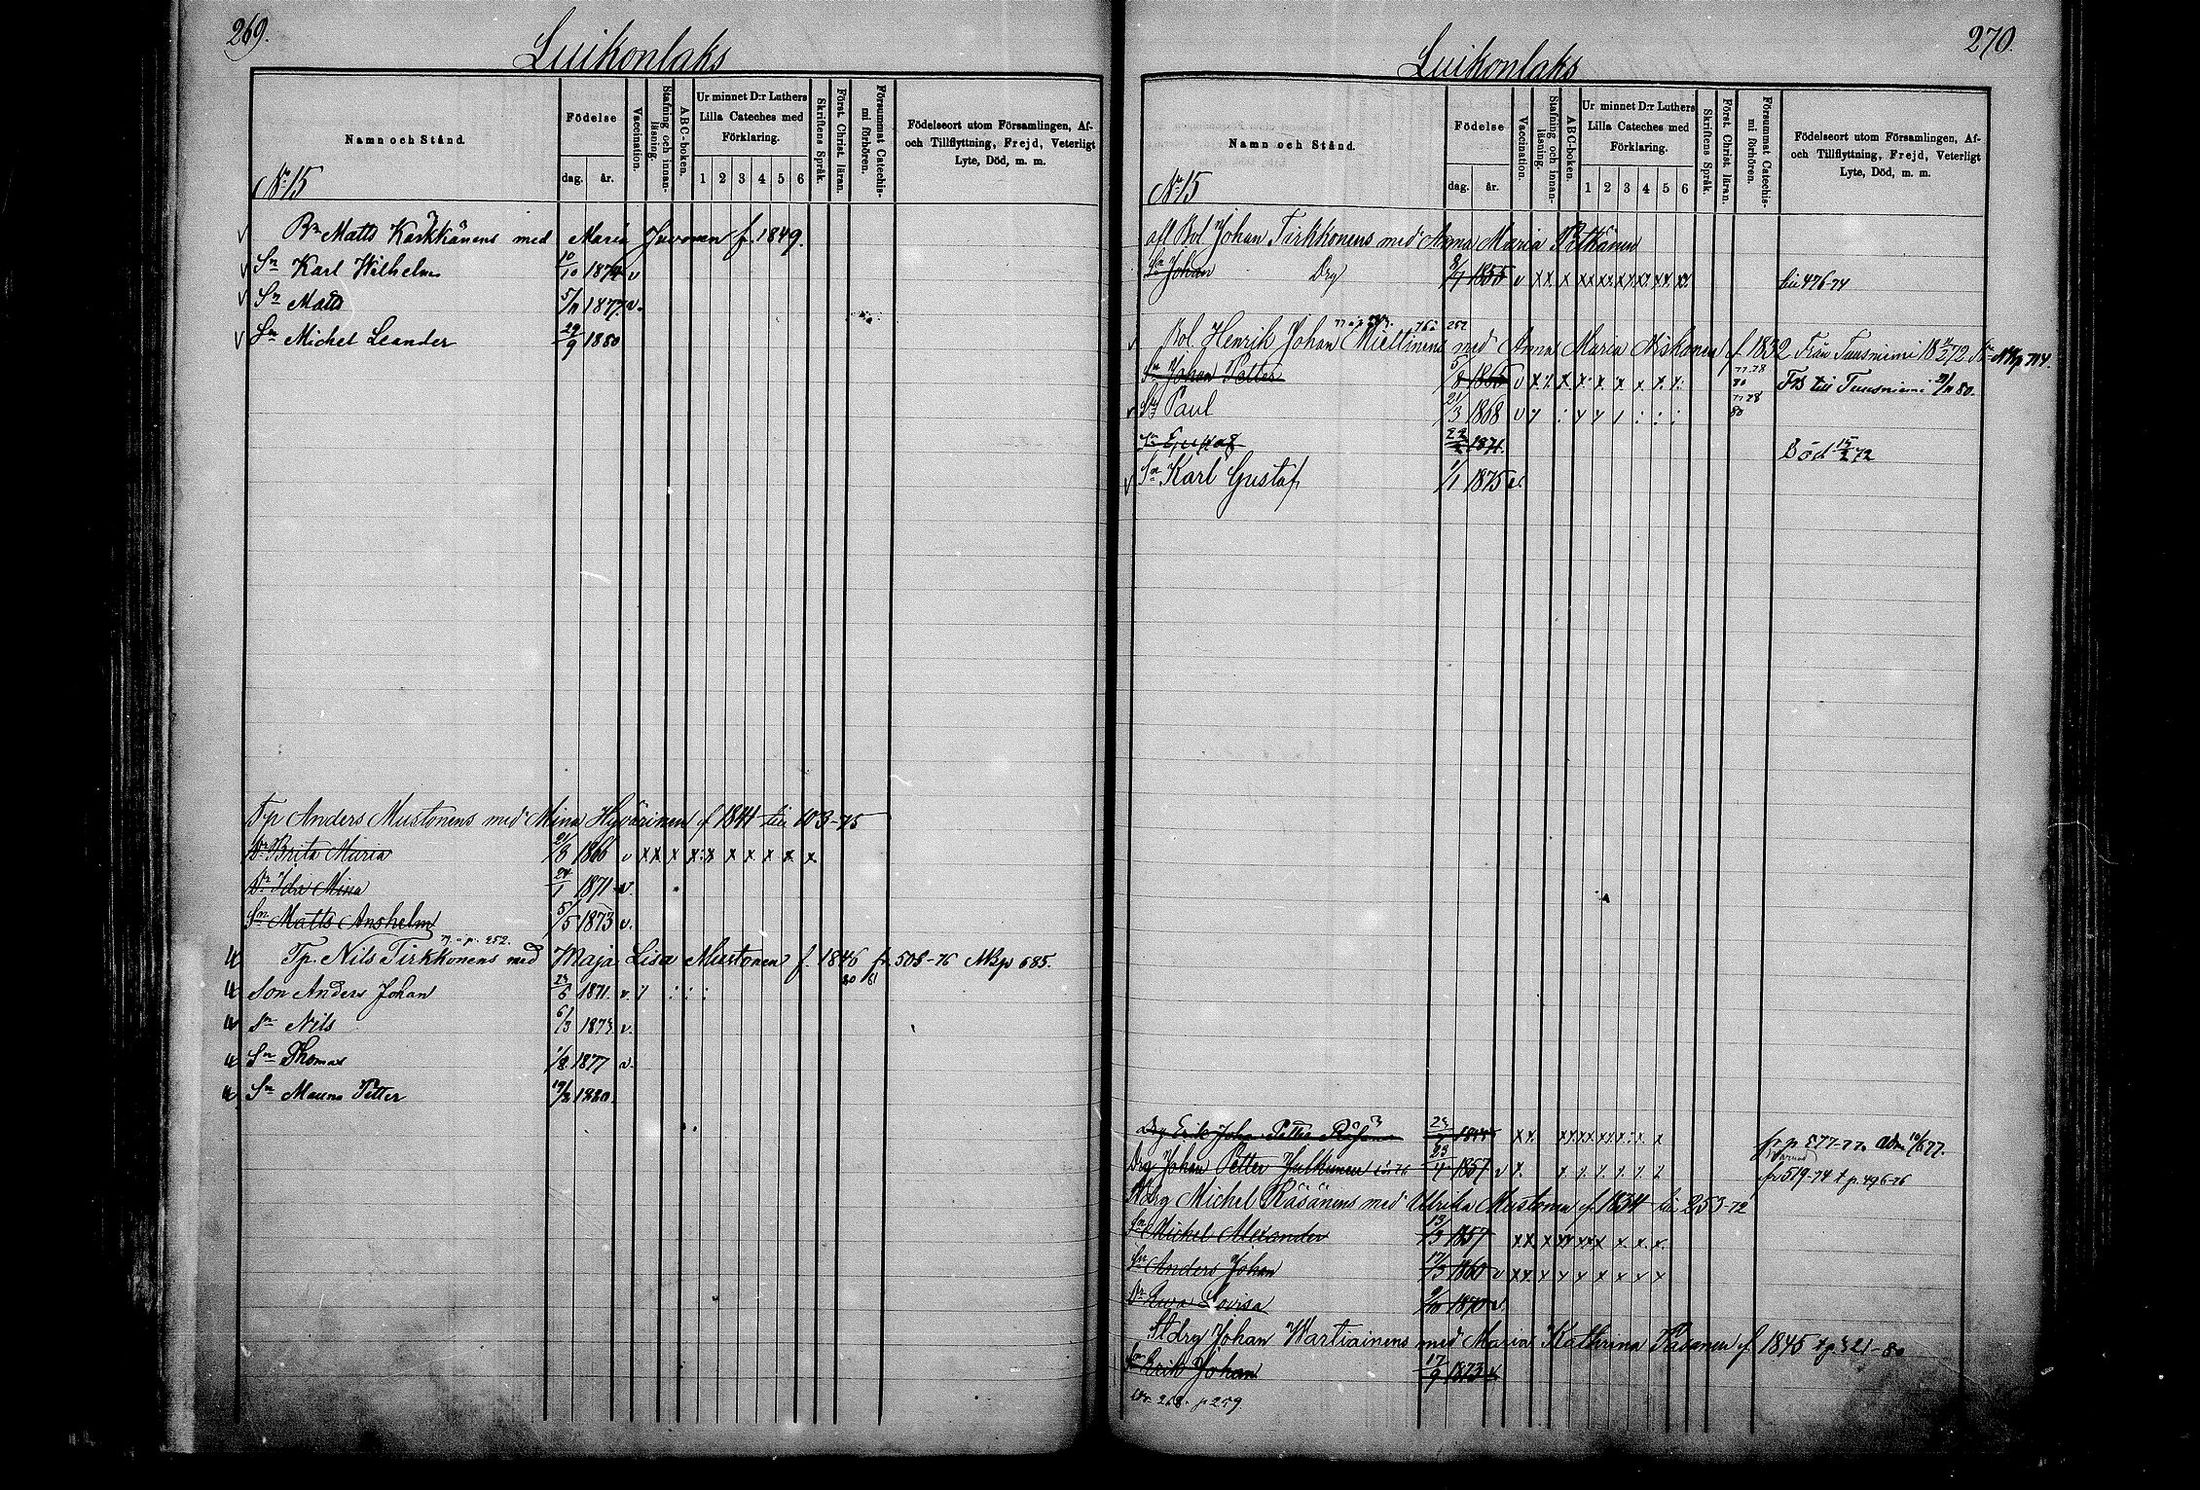 269.
Luikonlaks
Namn och Stånd.
Födelse
dag. år.
Vaccination.
Stafning och innan-
läsning.
ABC-boken.
Ur minnet D:r Luthers
Lilla Cateches med
Förklaring.
1 2 3 4 5 6
Skriftens Språk.
Först. Christ. läran.
Försummat Catechis-
mi förhören.
Födelseort utom Församlingen, Af-
och Tillflyttning, Frejd, Veterligt
Lyte, Död, m. m.
No 15
v Bn Matts Karkkänens med Maria Juvonen f. 1849.
v Sn Karl Wilhelm 10/10 1874 v
v Sn Matts 5/11 1877 v.
v Sn Michel Leander 29/9 1880
Tp Anders Mustonens med Mina Hyvärinen f 1841 till 103-75
Dr Brita Maria 21/8 1866 v x x x x x x x x x x
Dr Ida Mina 24/1 1871 v.
Sn Matts Anshelm 5/5 1873 v.
p. 252.
Tp. Nils Tirkkonens med Maja Lisa Mustonen f. 1846 fr. 508-76 NBp 685.
80 81
Son Anders Johan 23/6 1871. v. / : : :
Sn Nils 6/3 1873 v.
Sn Thomas 1/8 1877 v.
Sn Mauno Petter 19/2 1880.
270.
Luikonlaks
Namn och Stånd.
Födelse
dag. år.
Vaccination.
Stafning och innan-
läsning.
ABC-boken.
Ur minnet D:r Luthers
Lilla Cateches med
Förklaring.
1 2 3 4 5 6
Skriftens Språk.
Först. Christ. läran.
Försummat Catechis-
mi förhören.
Födelseort utom Församlingen, Af-
och Tillflyttning, Frejd, Veterligt
Lyte, Död, m. m.
No 15
afl Bol Johan Tirkkonens med Anna Maria Pitkänen
Sn Johan Drg 8/7 1855 v x x x x x x x x x x till 476-74
252
v Bol. Henrik Johan Miettinens med Anna Maria Niskonen f 1832 Från Tuusniemi 18 72 NBp 714.
Sn Johan Petter 5/8 1865 v x x x x x x x x x 77 78 80 FB till Tuusniemi 80.
v Sn Paul 21/3 1868 v y : y y / : : : 77 78 80
22 1871. Död 15/2 72
v Sn Karl Gustaf 1/1 1875 v.
Drg Erik Johan Petter 23 x x x x x x x x x x fr p. 577-77.
Drg Johan Petter Julkunen 23/4 1857 v x. x x x x x x fr 519-74 t p. 496-76
Stdrg Michel Räsänens med Ulrika Mustonen f. 1834 till 253-72
Sn Michel Alexander 13/3 1857 x x x x x x x x x
Sn Anders Johan 17/3 1860 v x x x x x x x x x
Dr Ewa Lovisa 9/10 1870 v.
Stdrg Johan Wartiainens med Maria Kathrina Räsänen f. 1845 t p. 521-80
Sn Erik Johan 17/9 1873 v
268. p 259.